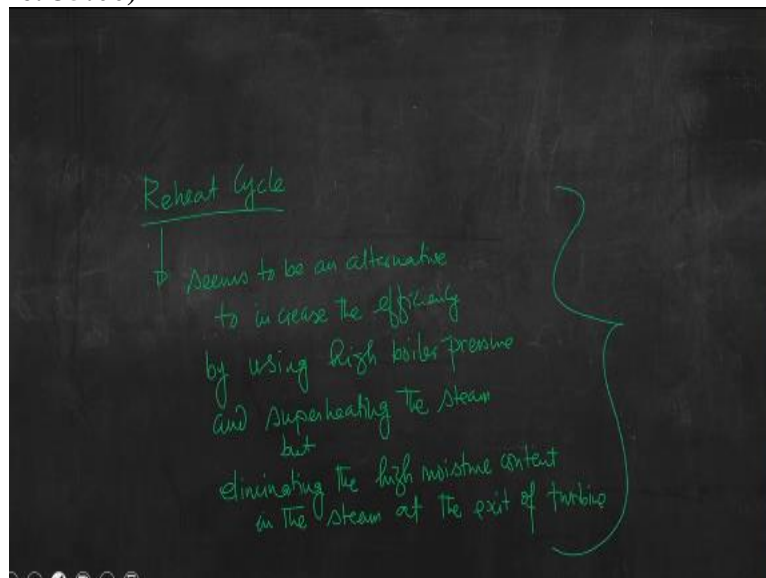 Reheat Cycle
seems to be an alternative
to increase the efficiency
by using high boiler pressure
and superheating the steam
but
eliminating the high moisture content
in the steam at the exit of turbine